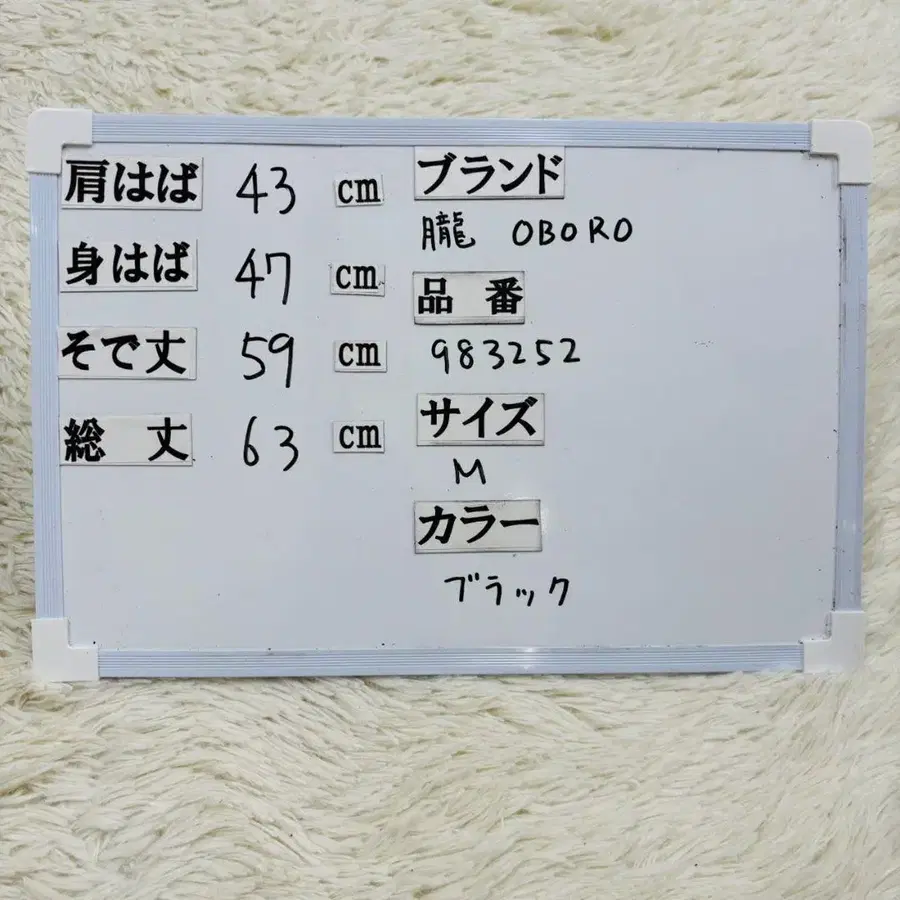 肩はば 43 cm
身はば 47 cm
そで丈 59 cm
総 丈 63 cm
ブランド
朧 OBORO
品 番
983252
サイズ
M
カラー
ブラック